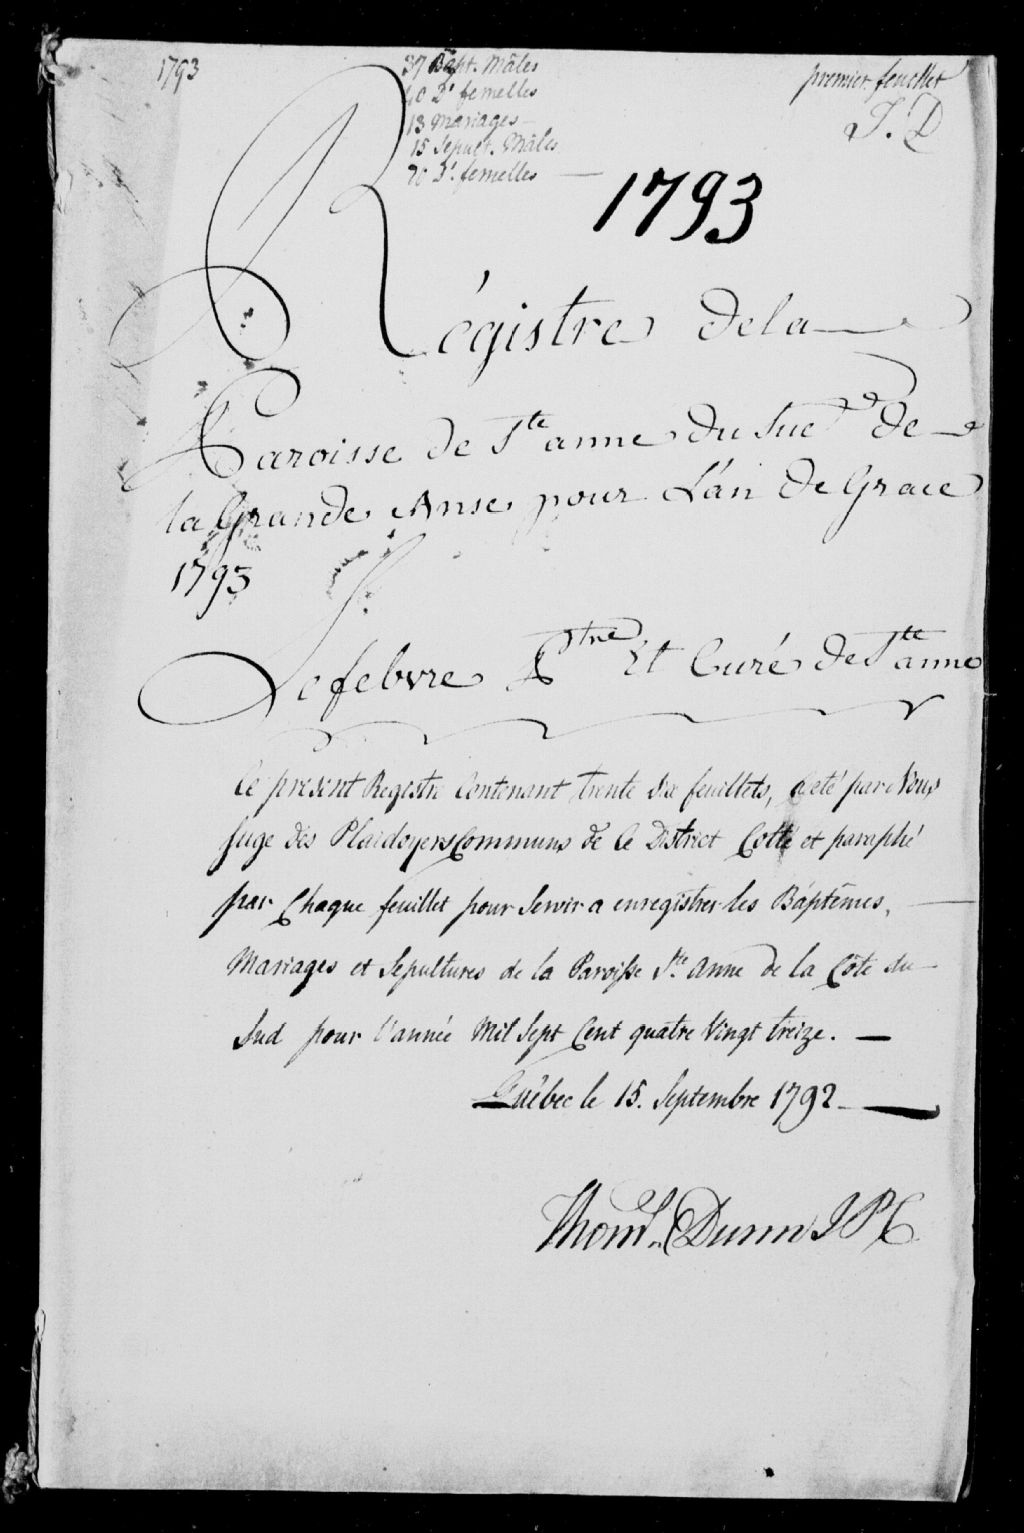 1793
37 Bapt. Mâles
40 D° femelles
13 Mariages
15 Sepult. Mâles
20 D° femelles
premier feuillet
T. D
1793
Régistre de la
Paroisse de Ste anne du Sud de
la Grande Anse pour L'an De Grace
1793
Lefebvre Ptre Et Curé de Ste anne
Ce present Registre Contenant trente Six feuillets, a eté par Nous
Juge des Plaidoyers Communs de Ce District Cotté et paraphé
par Chaque feuillet pour Servir a enregistrer les Baptêmes,
Mariages et Sepultures de la Paroisse Ste Anne de la Côte du
Sud pour l'année Mil Sept Cent quatre Vingt treize.
Québec le 15. Septembre 1792
Thoms. Dunn J P C